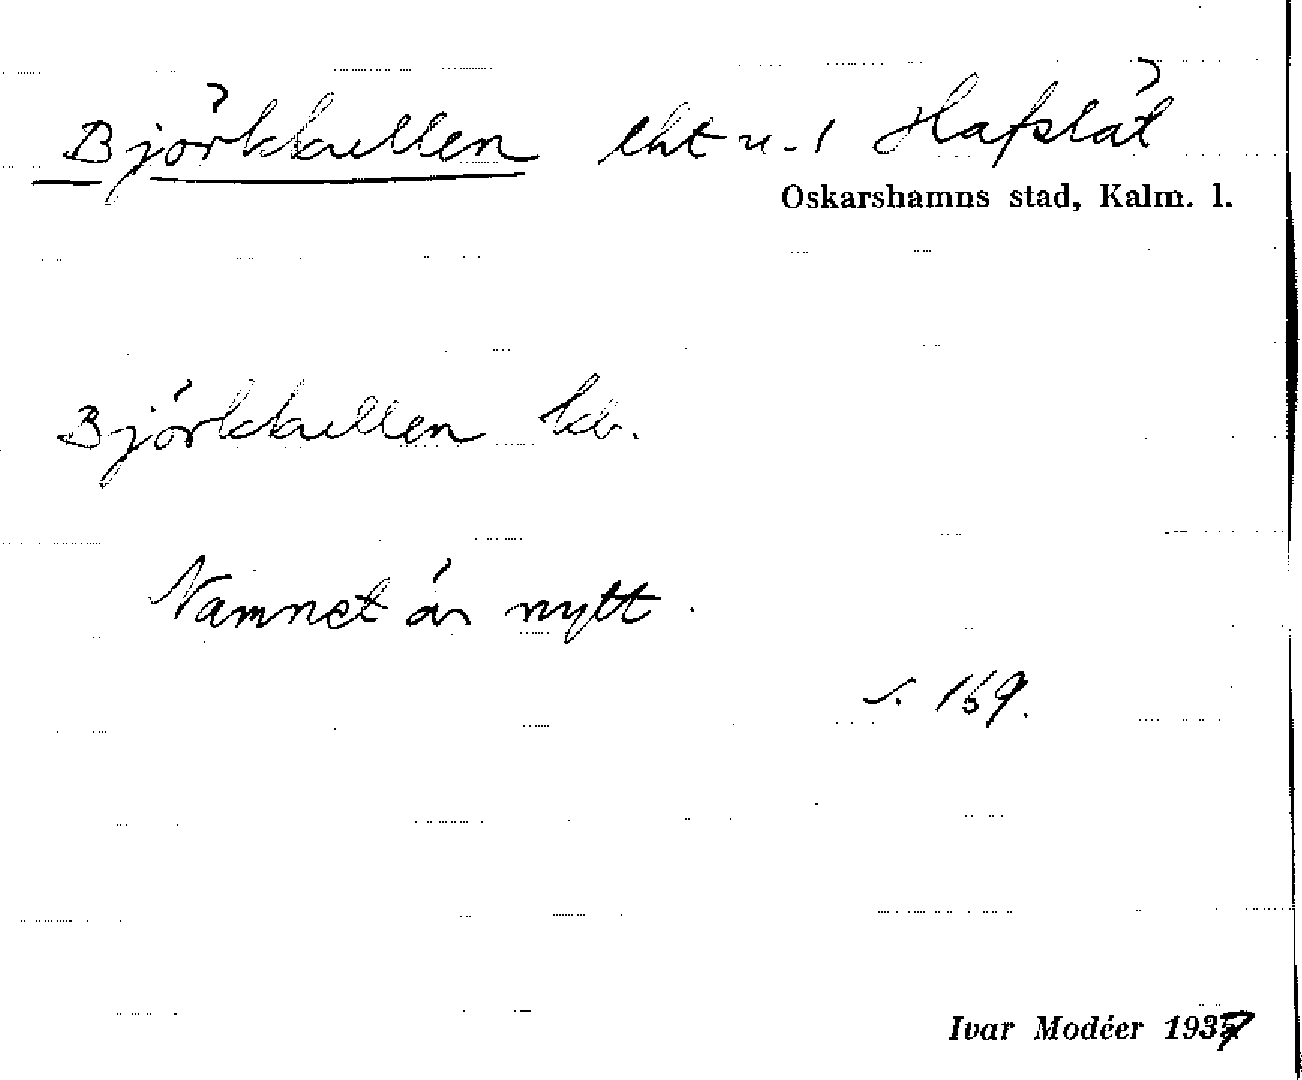 Björkkullen lht u. 1 Hafslät
Oskarshamns stad, Kalm. l.
Björkkullen kb.
Namnet är nytt.
s. 159.
Ivar Modéer 1937